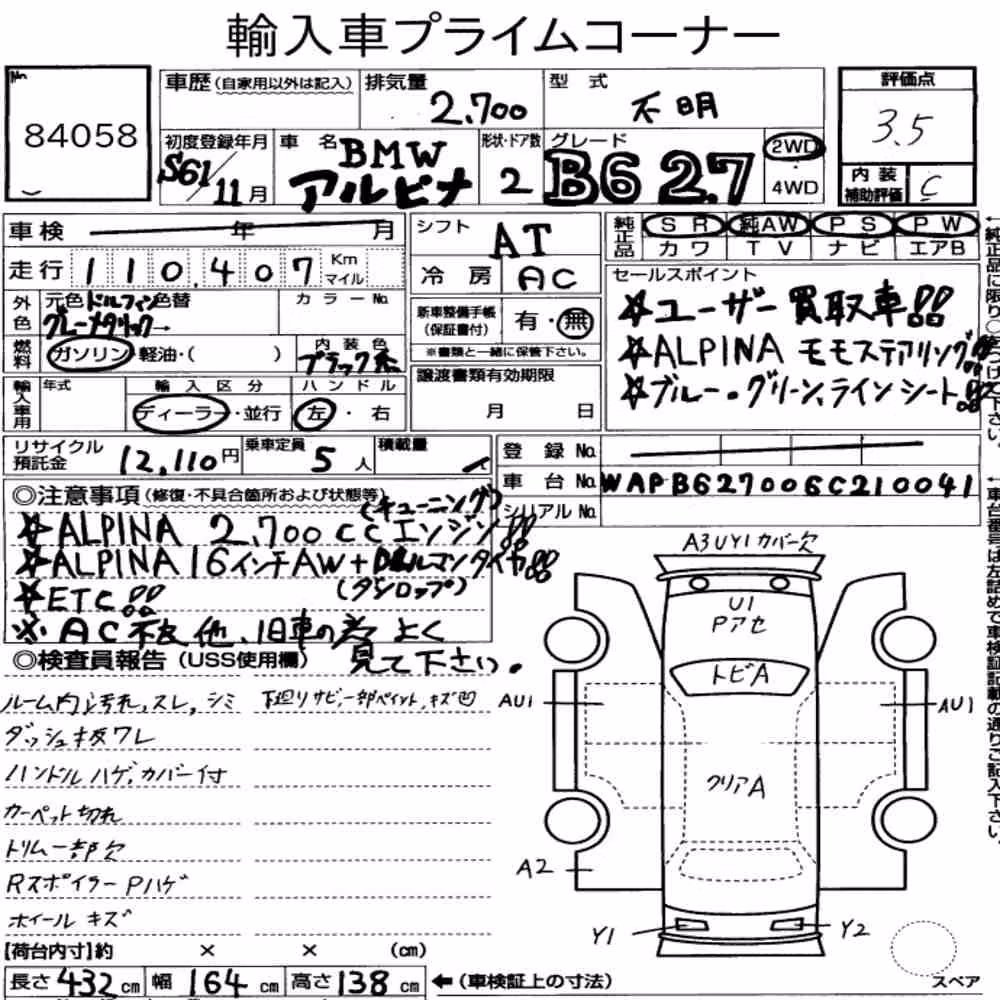 輸入車プライムコーナー
No.
84058
車歴(自家用以外は記入)
排気量
2.700
型式
不明
評価点
3.5
初度登録年月
S61/11月
車名
BMW
アルピナ
形状・ドア数
2
グレード
B6 2.7
2WD
・
4WD
内装
補助評価
C
車検 年 月
シフト
AT
純正品
SR 純AW PS PW
カワ TV ナビ エアB
走行 110,407 Km マイル
冷房 AC
セールスポイント
☆ユーザー買取車!!
☆ALPINA モモステアリング!!
☆ブルー・グリーンラインシート!!
外色
元色ドルフィン色替
グレーメタリック→
カラーNo.
新車整備手帳
(保証書付)
有・無
※書類と一緒に保管下さい。
燃料
ガソリン・軽油・( )
内装色
ブラック系
譲渡書類有効期限
月 日
輸入車用
年式
輸入区分
ディーラー・並行
ハンドル
左・右
リサイクル
預託金
12,110円
乗車定員
5人
積載量
登録No.
車台No.
WAPB627006C210041
シリアルNo.
◎注意事項(修復・不具合箇所および状態等)
(チューニング)
☆ALPINA 2,700ccエンジン!!
☆ALPINA 16インチAW+ タイヤ!!
☆ETC!!
(ダンロップ)
※AC不良他、旧車の為よく
見て下さい。
◎検査員報告(USS使用欄)
ルーム内汚れ,スレ,シミ
下廻りサビ,一部ペイント,キズ凹
ダッシュ板ワレ
ハンドルハゲ,カバー付
カーペット切れ
トリム一部欠
RスポイラーPハゲ
ホイールキズ
A3UY1カバー欠
U1
Pアセ
トビA
AU1
AU1
クリアA
A2
Y1
Y2
スペア
【荷台内寸】約 × × (cm)
長さ432cm 幅164cm 高さ138cm ←(車検証上の寸法)